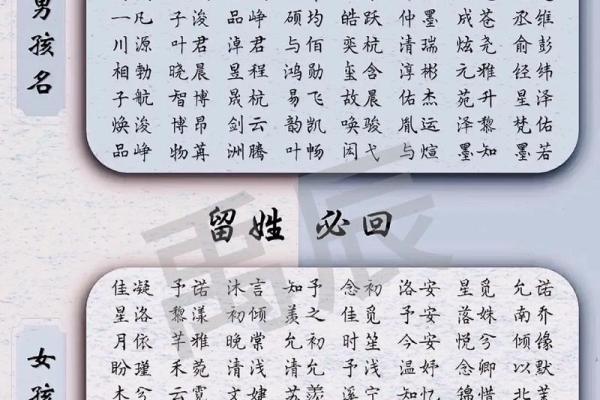 男孩名
一凡 子浚 品峥 硕均 皓跃 仲墨 成苍 丞锥
川源 叶君 淖君 与佰 奕杭 清瑞 炫尧 俞彭
相勃 晓晨 昱程 鸿勋 玺含 淳彬 元雅 经纬
子航 智博 晟杭 易飞 故晨 佑杰 苑升 星泽
焕浚 博昂 剑云 韵凯 唤骏 胤运 泽黎 梵佑
品峥 物苒 洲腾 叶畅 闵弋 与煊 墨知 墨若
留姓 必回
禹辰
女孩
佳凝 予诺 沐言 知予 念初 洛安 星觅 允诺
星洛 黎漾 初倾 羡之 佳觅 予安 落姝 南乔
月依 芊雅 晚棠 允初 时笙 今安 悦兮 倾缘
盼瑾 禾菀 清浅 清允 予浅 温妤 念卿 以默
木兮 云霓 文婕 苏羡 溪宁 知忆 锦惜 北茉